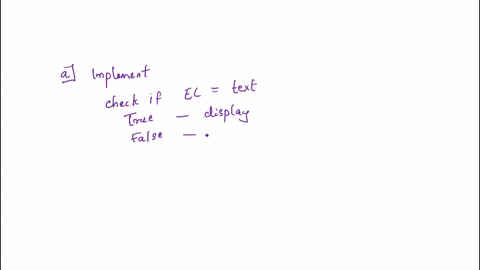 a] Implement
check if EC = text
True — display
False — .